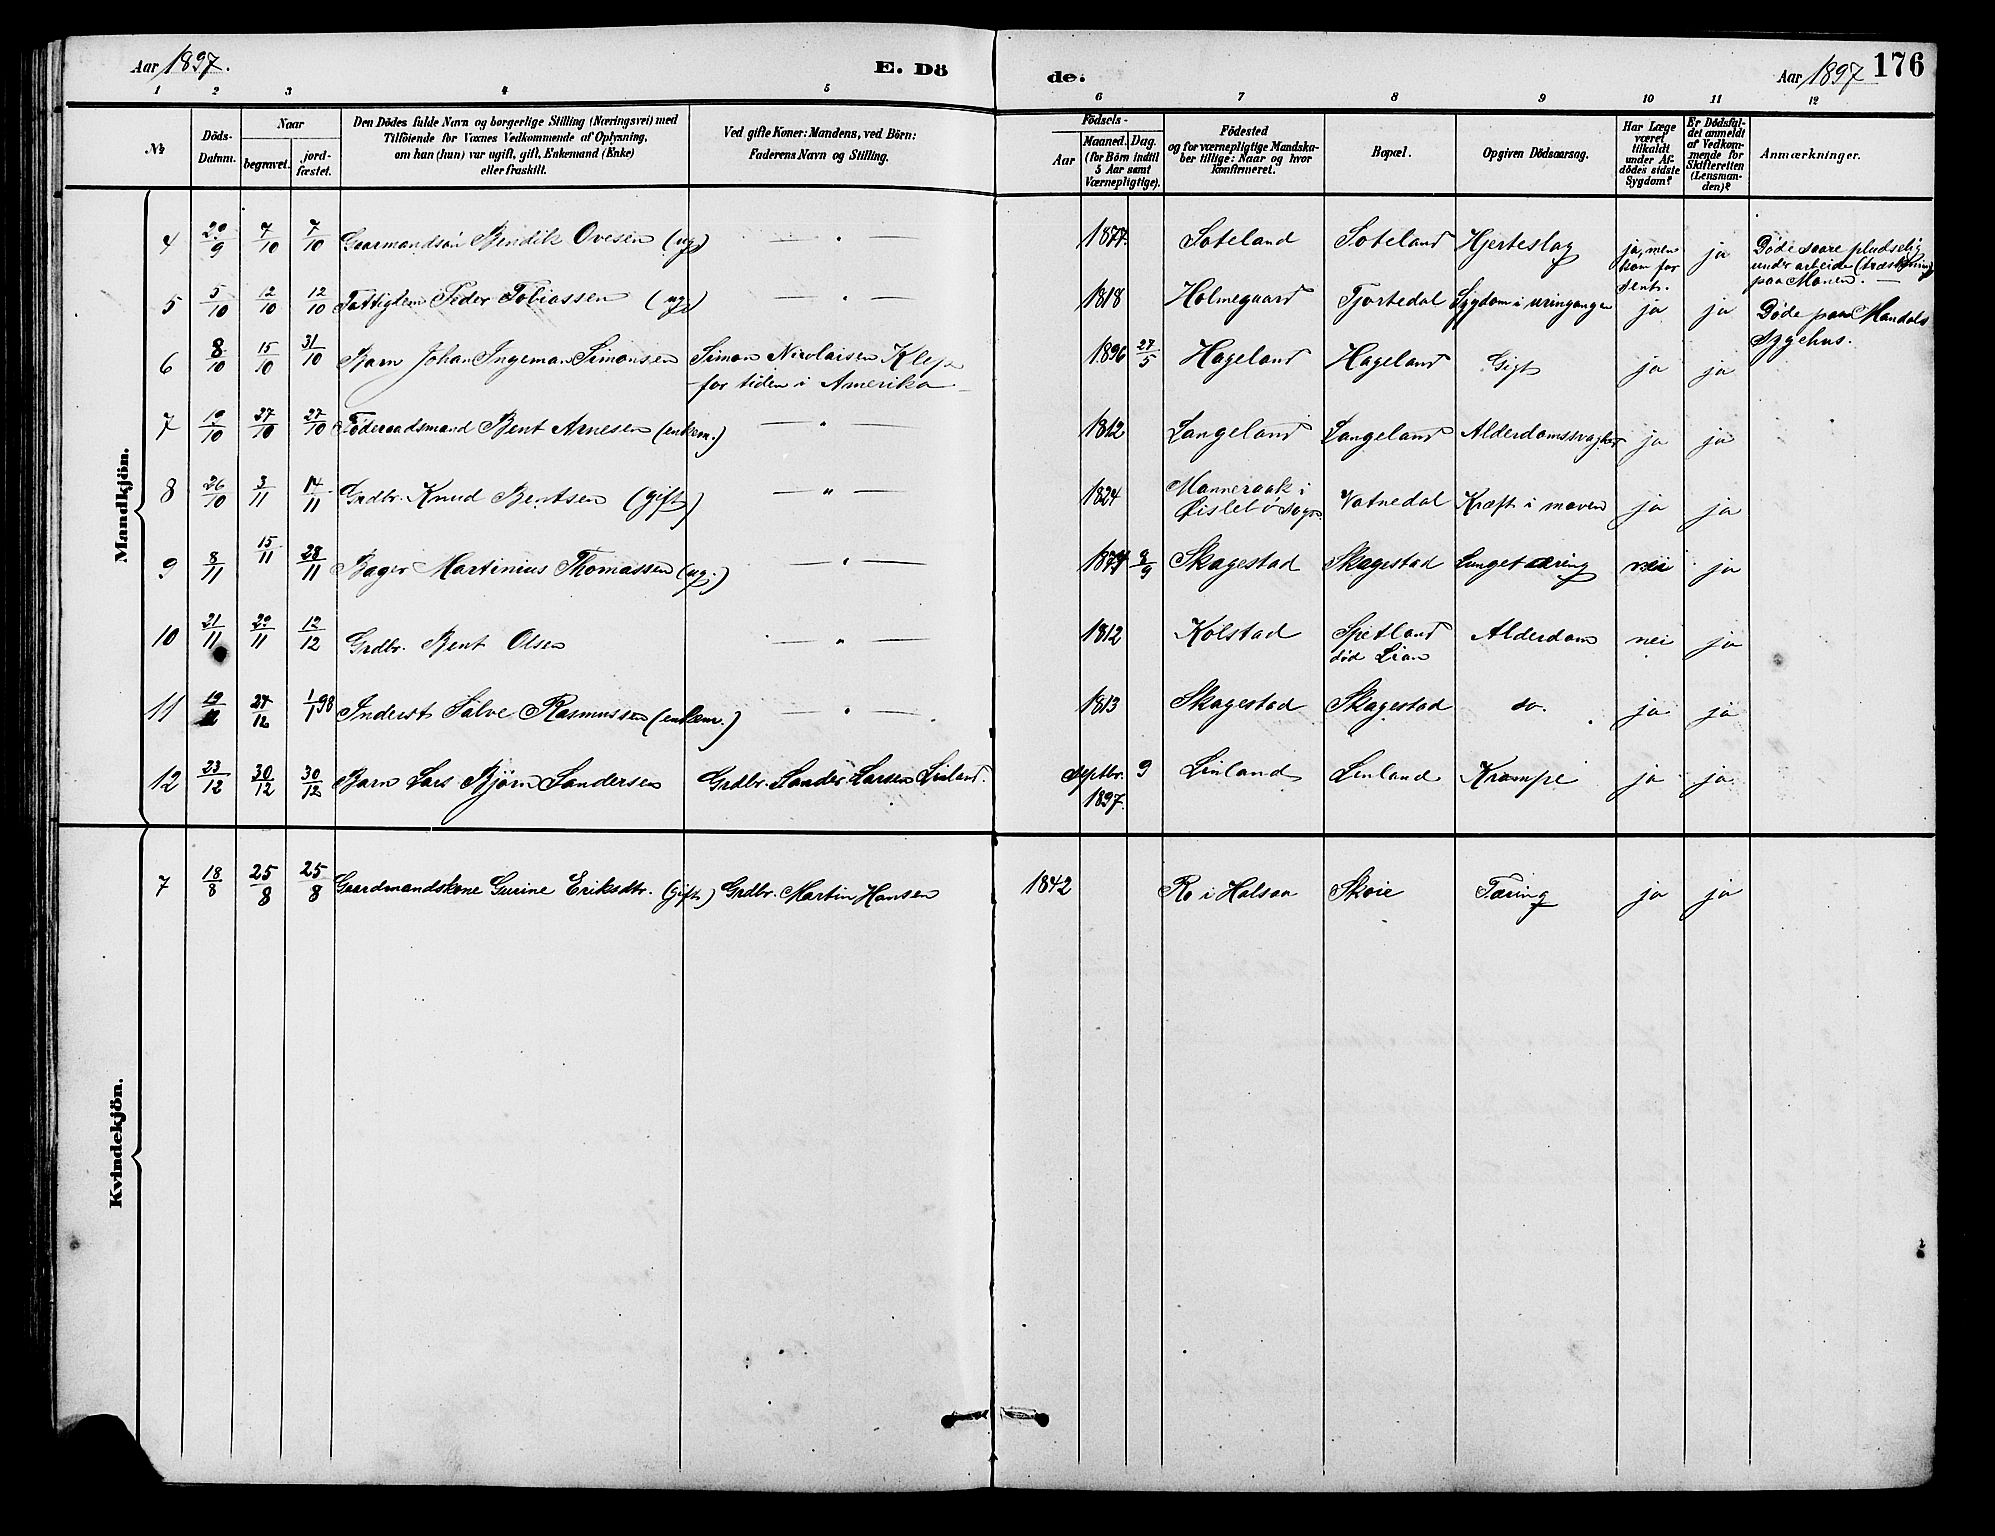 Aar 1897. E. Dö de. Aar 1897 176
1 2 3 4 5 6 7 8 9 10 11 12
№
Döds-
Datum.
Naar
begravet.
jord-
fæstet.
Den Dödes fulde Navn og borgerlige Stilling (Næringsvei) med
Tilföiende for Voxnes Vedkommende af Oplysning,
om han (hun) var ugift, gift, Enkemand (Enke)
eller fraskilt.
Ved gifte Koner: Mandens, ved Börn:
Faderens Navn og Stilling.
Födsels-
Aar
Maaned. Dag.
(for Börn indtil
5 Aar samt
Værnepligtige).
Födested
og for værnepligtige Mandska-
ber tillige: Naar og hvor
konfirmeret.
Bopæl.
Opgiven Dödsaarsag.
Har Læge
været
tilkaldt
under Af-
dödes sidste
Sygdom?
Er Dödsfal-
det anmeldt
af Vedkom-
mende for
Skifteretten
(Lensman-
den)?
Anmærkninger.
Mandkjön.
4 29/9 7/10 7/10 Gaarmandsøn Bendik Ovesen (ug.) — " — 1877. Soteland Soteland Hjerteslag ja, men kom for sent. ja Døde saare pludselig
under arbeide
paa Monen. —
5 5/10 12/10 12/10 Fattiglem Peder Tobiassen (ug.) — " — 1818 Holmegaard Tjortedal Sygdom i uringangen ja ja Døde paa Mandals
Sygehus.
6 8/10 15/10 31/10 Barn Johan Ingeman Simonsen Simon Nicolaisen 1896 27/5 Hageland Hageland Gigt ja ja
for tiden i Amerika
7 19/10 27/10 27/10 Føderaadsmand Bent Arnesen (enkem.) — " — 1812 Langeland Langeland Alderdomssvaghed ja ja
8 26/10 3/11 14/11 Grdbr. Knud Bentsen (gift) — " — 1824 Manneraak i
Øislebø sogn. Vatnedal Kræft i maven ja ja
9 8/11 15/11 28/11 Bager Martinius Thomassen (ug.) — " — Skagestad Skagestad Lungetæring nei ja
10 21/11 29/11 12/12 Grdbr. Bent Olsen — " — 1812 Kolstad Spetland
død Lian Alderdom nei ja
11 19/12 27/12 1/1 98 Inderst Salve Rasmussen (enkem.) — " — 1813 Skagestad Skagestad do. ja ja
12 23/12 30/12 30/12 Barn Lars Bjørn Sandersen Grdbr. Sander Larsen Linland. Septbr. 9 Linland Linland Krampe ja ja
1897.
Kvindekjön.
7 18/8 25/8 25/8 Gaardmandskone Gurine Eriksdtr. (gift) Grdbr. Martin Hansen 1842 Ro i Halsaa Skoie Tæring ja ja